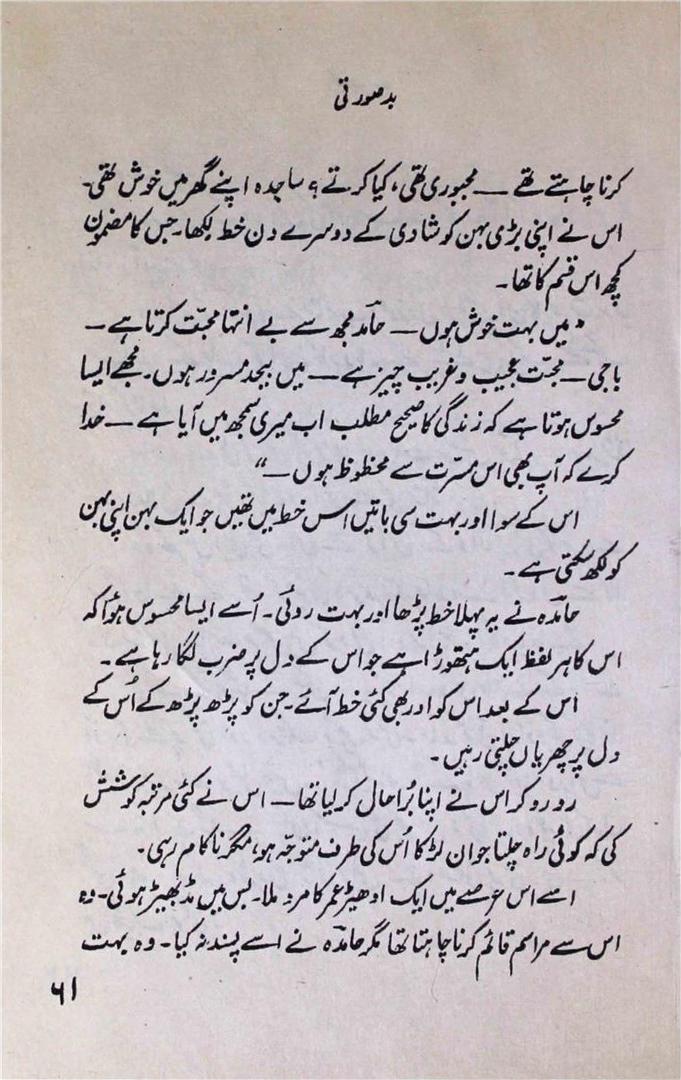 بدصورتی
کرنا چاہتے تھے — مجبوری تھی، کیا کرتے؟ ساجدہ اپنے گھر میں خوش تھی۔
اس نے اپنی بڑی بہن کو شادی کے دوسرے دن خط لکھا۔ جس کا مضمون
کچھ اس قسم کا تھا۔
”میں بہت خوش ہوں — حامد مجھ سے بے انتہا محبّت کرتا ہے —
باجی — محبّت عجیب و غریب چیز ہے — میں بیحد مسرور ہوں۔ مجھے ایسا
محسوس ہوتا ہے کہ زندگی کا صحیح مطلب اب میری سمجھ میں آیا ہے — خدا
کرے کہ آپ بھی اس مسرّت سے محظوظ ہوں —“
اس کے سوا اور بہت سی باتیں اس خط میں تھیں جو ایک بہن اپنی بہن
کو لکھ سکتی ہے۔
حامدہ نے یہ پہلا خط پڑھا اور بہت روئی۔ اُسے ایسا محسوس ہوا کہ
اس کا ہر لفظ ایک ہتھوڑا ہے جو اس کے دل پر ضرب لگا رہا ہے۔
اس کے بعد اس کو اور بھی کئی خط آئے۔ جن کو پڑھ پڑھ کے اُس کے
دل پر چھریاں چلتی رہیں۔
رو رو کر اس نے اپنا بُرا حال کر لیا تھا — اس نے کئی مرتبہ کوشش
کی کہ کوئی راہ چلتا جوان لڑکا اُس کی طرف متوجّہ ہو، مگر ناکام رہی۔
اسے اس عرصے میں ایک ادھیڑ عمر کا مرد ملا۔ بس میں مڈبھیڑ ہوئی۔ وہ
اس سے مراسم قائم کرنا چاہتا تھا مگر حامدہ نے اسے پسند نہ کیا۔ وہ بہت
۶۱